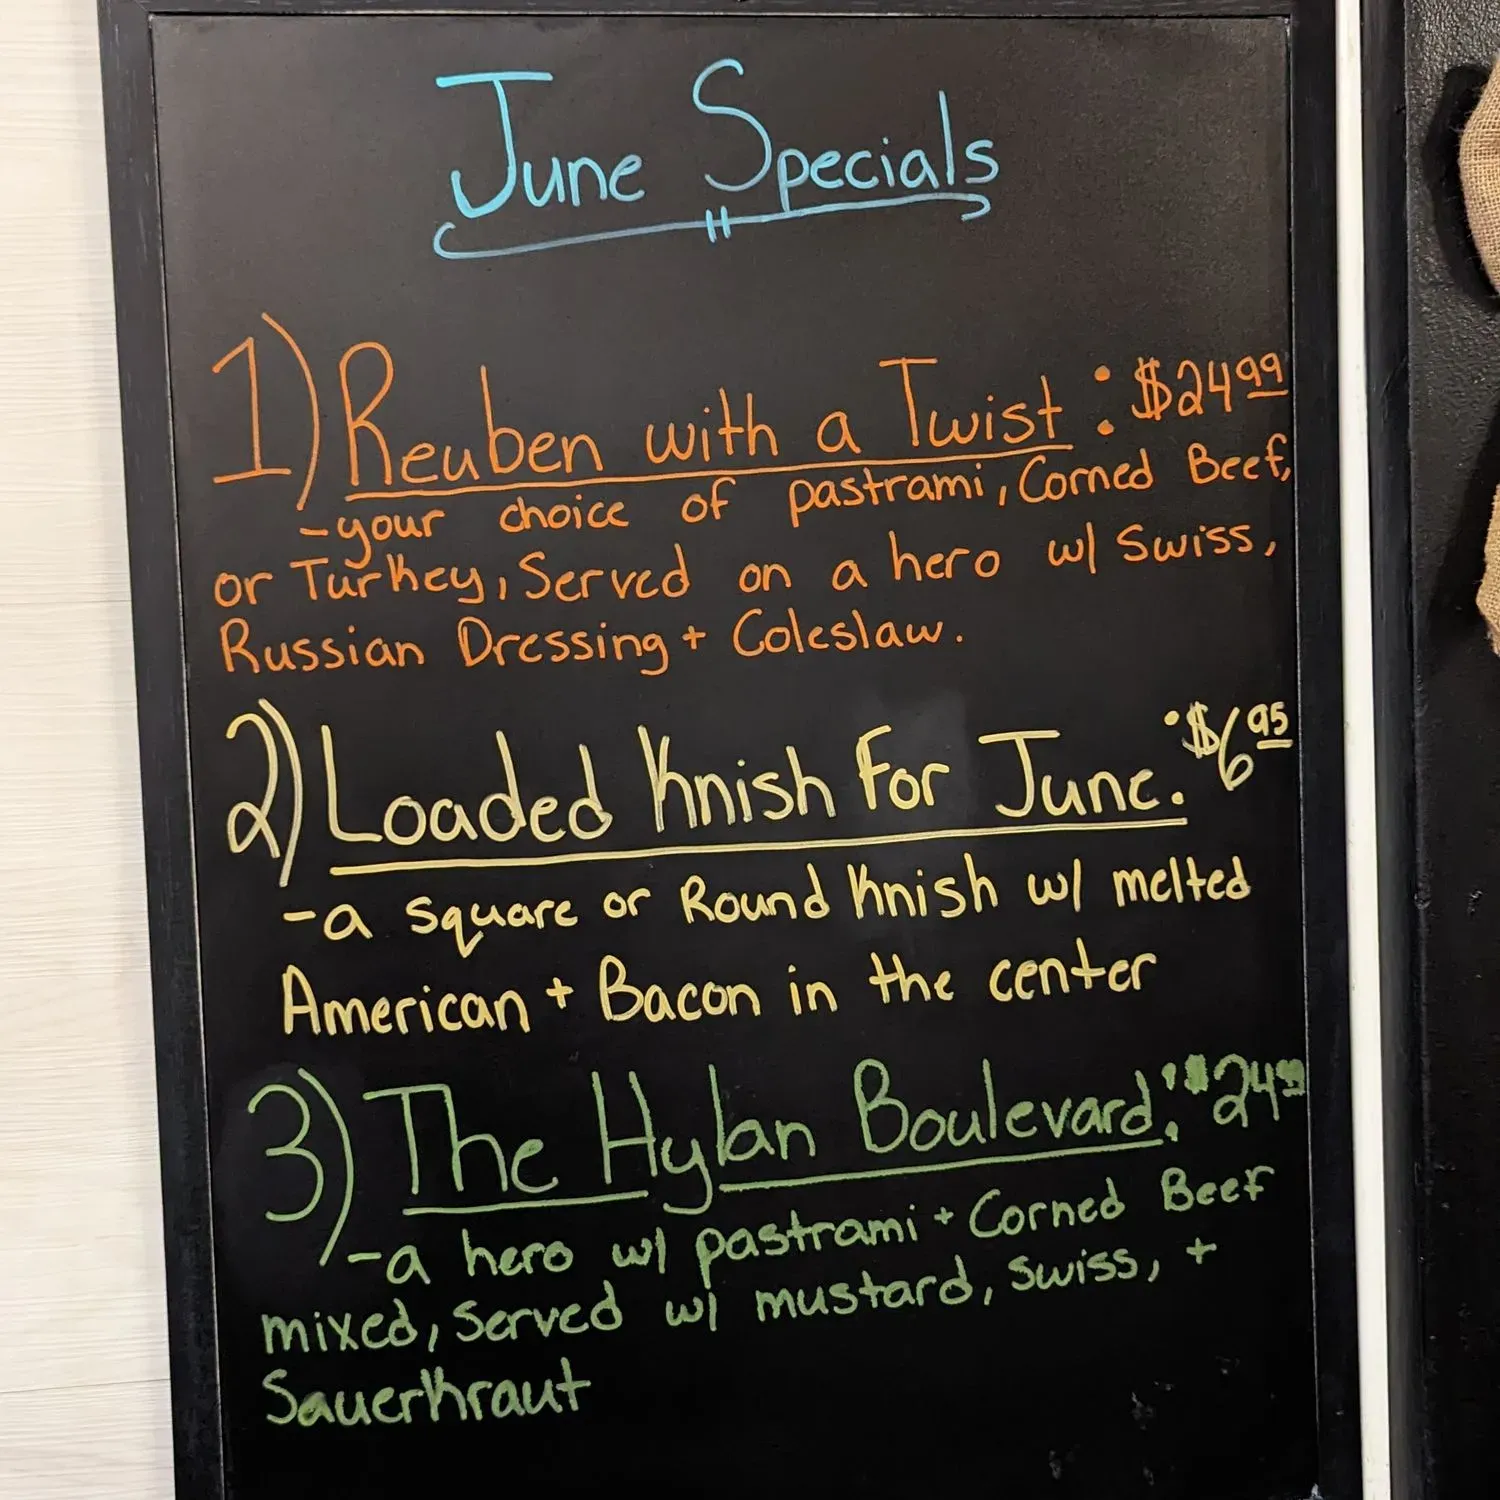 June Specials
1) Reuben with a Twist: $24.99
-your choice of pastrami, Corned Beef,
or Turkey, Served on a hero w/ Swiss,
Russian Dressing + Coleslaw.
2) Loaded Knish For June: $6.95
-a square or Round Knish w/ melted
American + Bacon in the center
3) The Hylan Boulevard: $24.99
-a hero w/ pastrami + Corned Beef
mixed, Served w/ mustard, Swiss, +
Sauerkraut